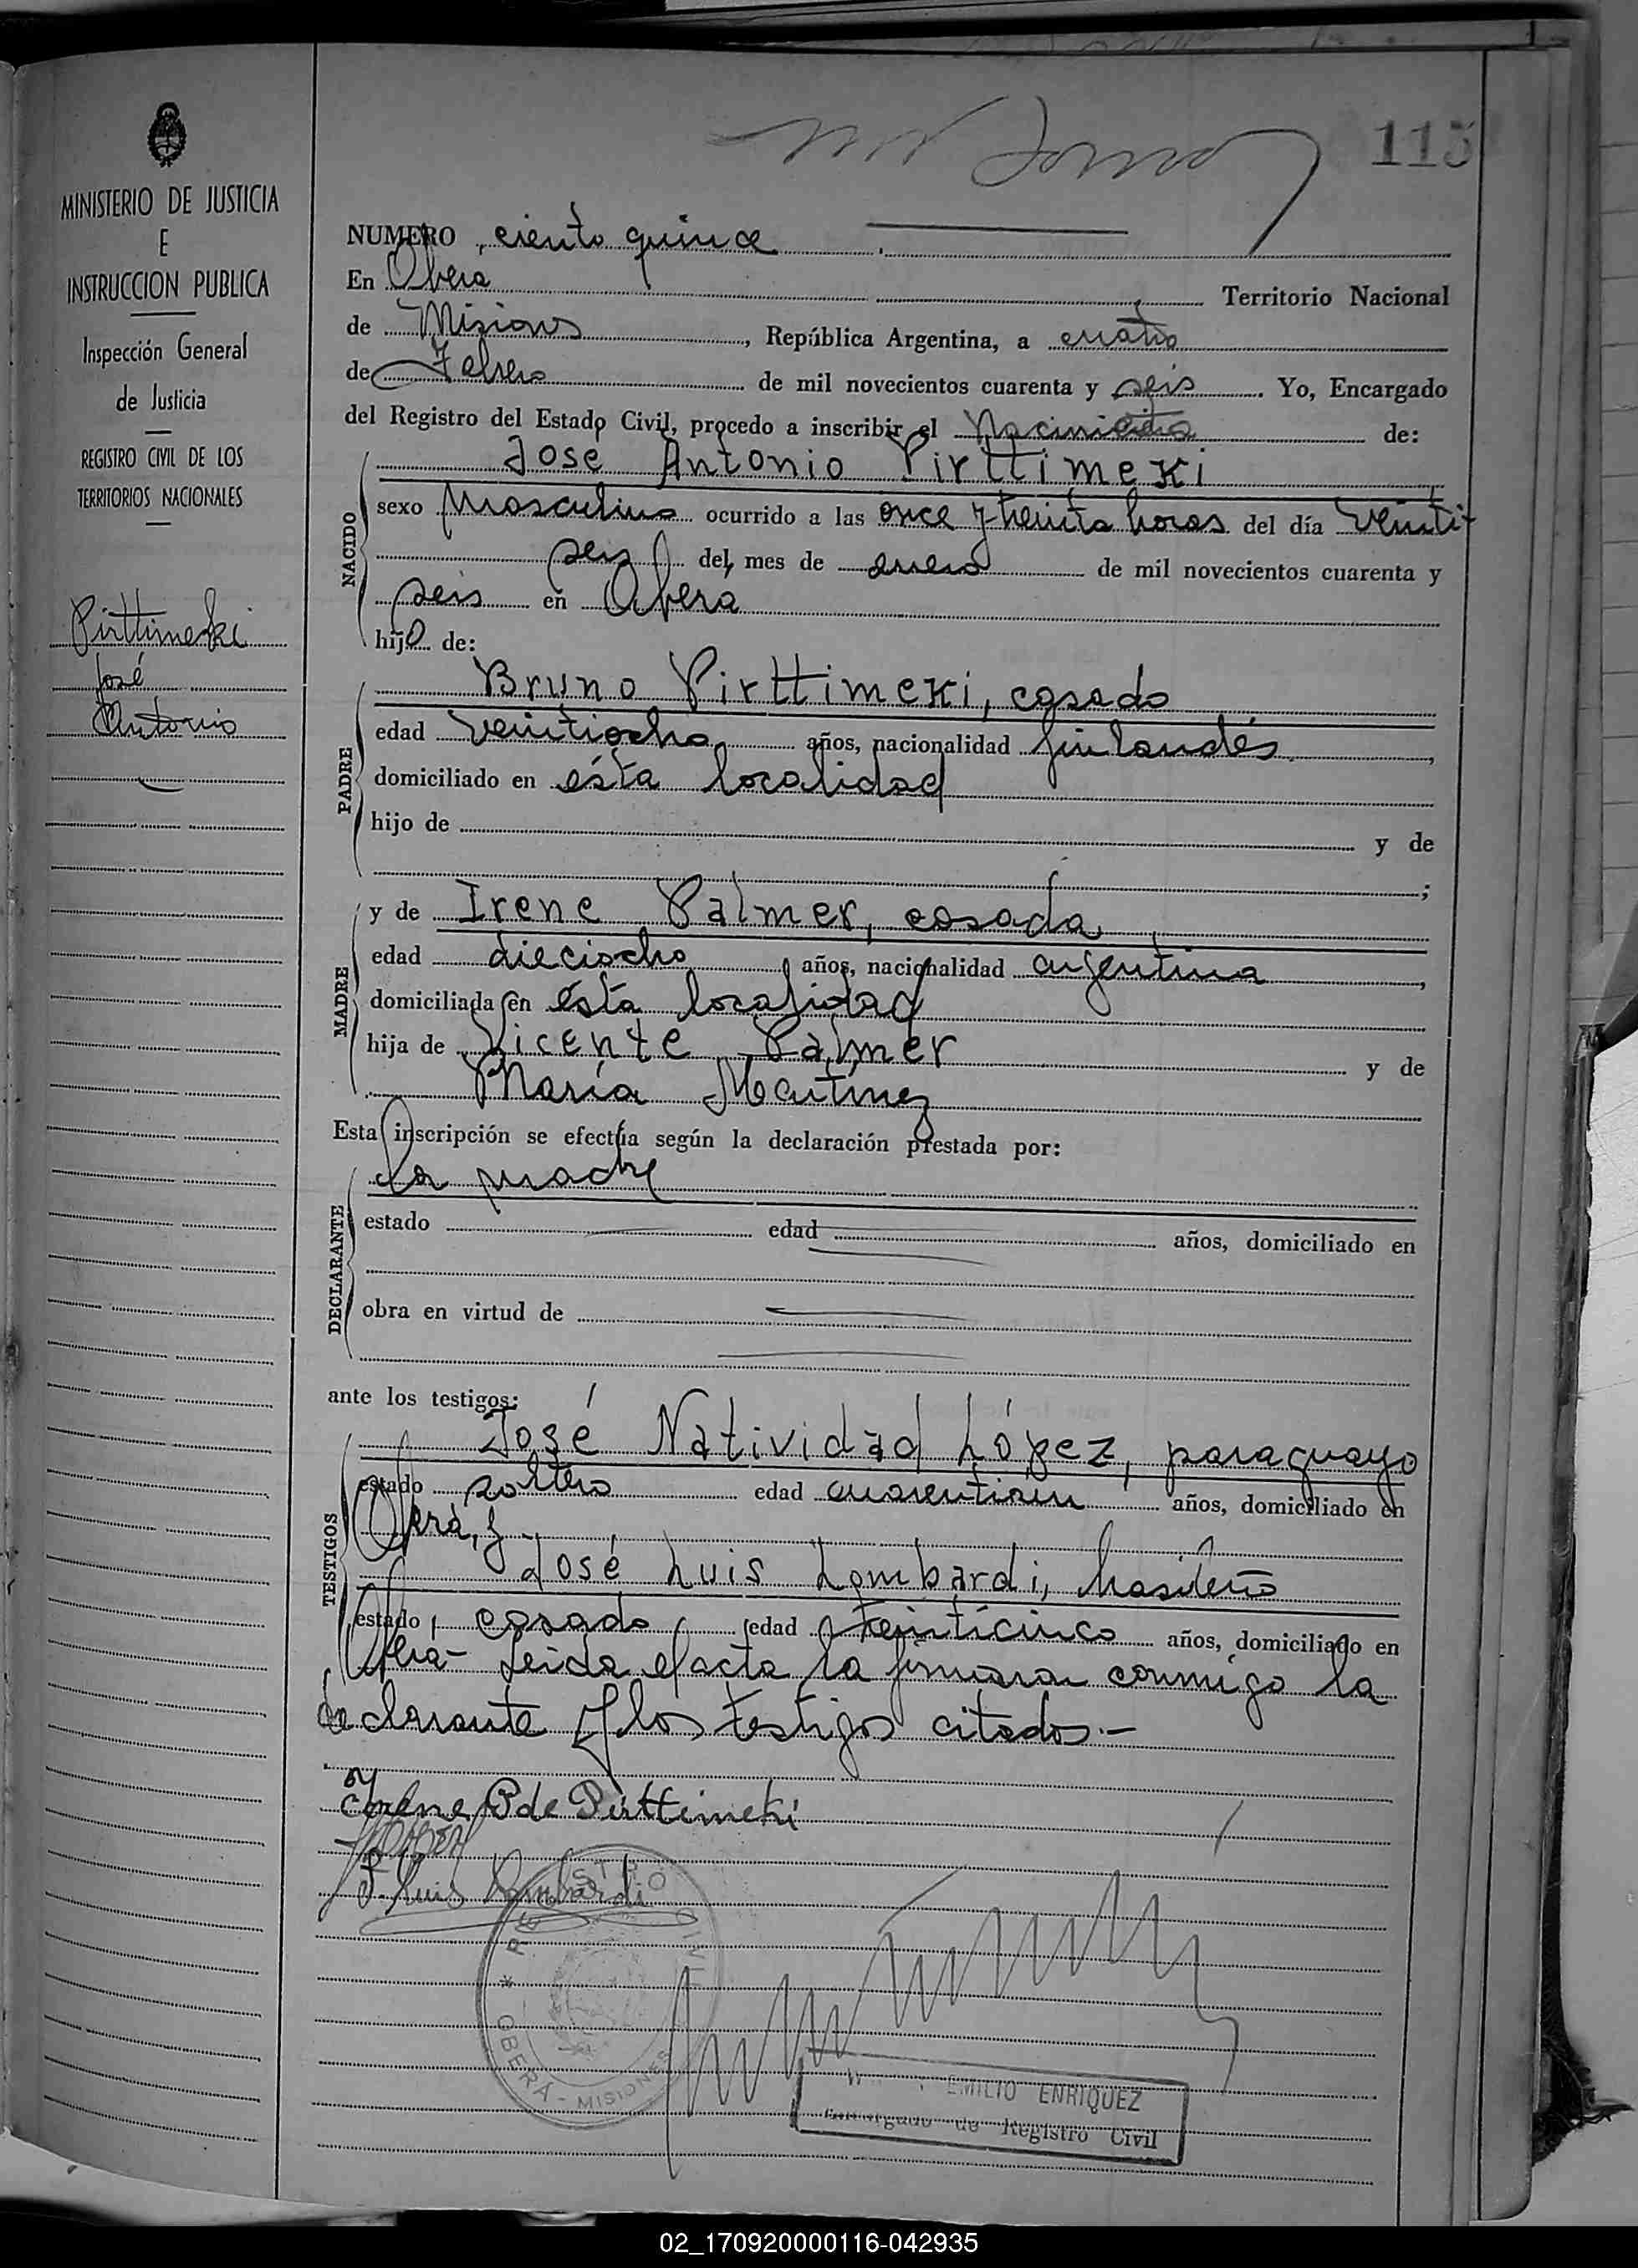 115
MINISTERIO DE JUSTICIA
E
INSTRUCCION PUBLICA
Inspección General
de Justicia
REGISTRO CIVIL DE LOS
TERRITORIOS NACIONALES
Pirttimeki
José
Antonio
NUMERO ciento quince
En Obera Territorio Nacional
de Misiones, República Argentina, a cuatro
de Febrero de mil novecientos cuarenta y seis. Yo, Encargado
del Registro del Estado Civil, procedo a inscribir el Nacimiento de:
NACIDO
Jose Antonio Pirttimeki
sexo Masculino ocurrido a las once y treinta horas del día veinti-
seis del mes de enero de mil novecientos cuarenta y
seis en Obera
hijo de:
PADRE
Bruno Pirttimeki, casado
edad veintiocho años, nacionalidad finlandés,
domiciliado en ésta localidad
hijo de y de
;
MADRE
y de Irene Palmer, casada
edad dieciocho años, nacionalidad argentina,
domiciliada en ésta localidad
hija de Vicente Palmer y de
María Martinez
Esta inscripción se efectúa según la declaración prestada por:
DECLARANTE
la madre
estado edad años, domiciliado en
obra en virtud de
ante los testigos:
TESTIGOS
José Natividad López, paraguayo
estado soltero edad años, domiciliado en
Oberá, y
José Luis Lombardi, brasileño
estado casado edad treinticinco años, domiciliado en
Obera- Leida el acta la firman conmigo la
declarante y los testigos citados.-
Irene P de Pirttimeki
J. Luis Lombardi
REGISTRO CIVIL
* OBERÁ - MISIONES
EMILIO ENRIQUEZ
Encargado de Registro Civil
02_170920000116-042935